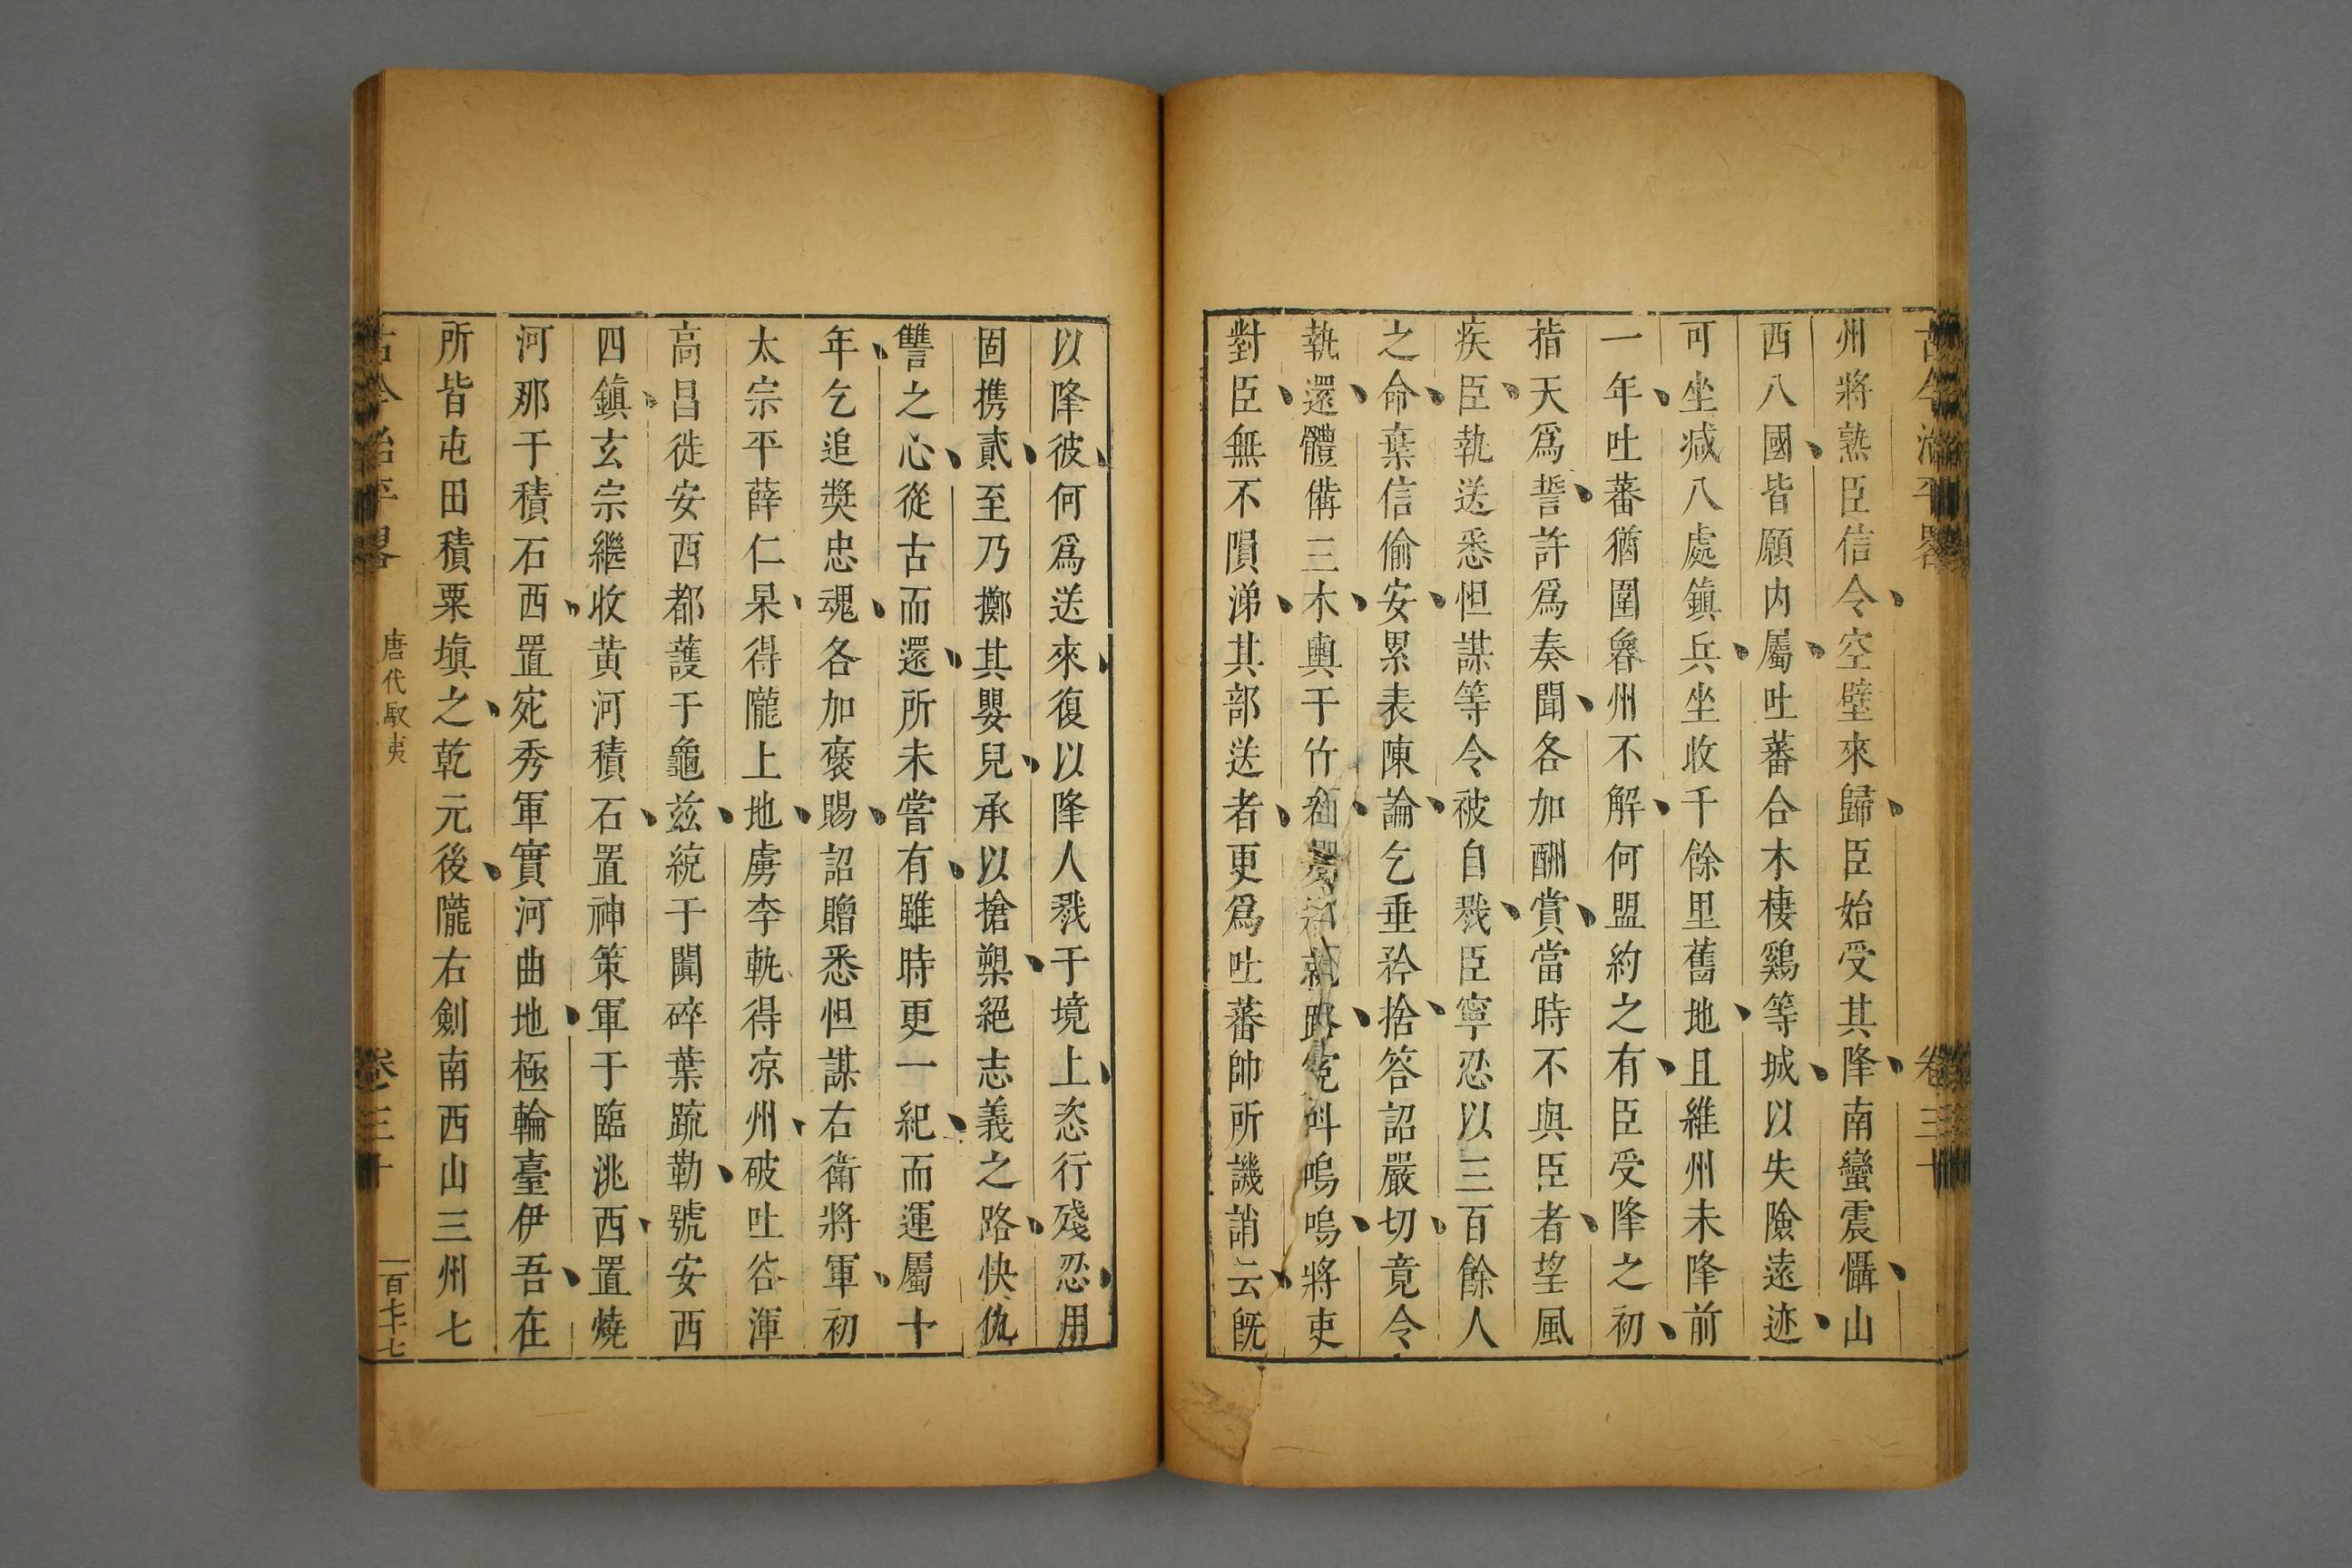 古今治平畧
卷三十
州將熟臣信令空壁來歸臣始受其降南蠻震懾山
西八國皆願内屬吐蕃合木棲鷄等城以失險遠迹
可坐减八處鎮兵坐收千餘里舊地且維州未降前
一年吐蕃猶圍魯州不解何盟約之有臣受降之初
指天爲誓許爲奏聞各加酬賞當時不與臣者望風
疾臣執送悉怛謀等令被自戮臣寧忍以三百餘人
之命棄信偷安累表陳論乞垂矜捨答詔嚴切竟令
執還體備三木輿于竹畚及將就路寃叫嗚嗚將吏
對臣無不隕涕其部送者更爲吐蕃帥所譏誚云旣
以降彼何爲送來復以降人戮于境上恣行殘忍用
固携貳至乃擲其嬰兒承以搶槊絕志義之路快仇
讐之心從古而還所未嘗有雖時更一紀而運屬十
年乞追奬忠魂各加褒賜詔贈悉怛謀右衛將軍初
太宗平薛仁杲得隴上地虜李軌得凉州破吐谷渾
高昌徙安西都護于龜兹統于闐碎葉疏勒號安西
四鎮玄宗繼收黄河積石置神策軍于臨洮西置燒
河那于積石西置宛秀軍實河曲地極輪臺伊吾在
所皆屯田積粟塡之乾元後隴右劍南西山三州七
古今治平畧
唐代馭夷
卷三十
一百七十七